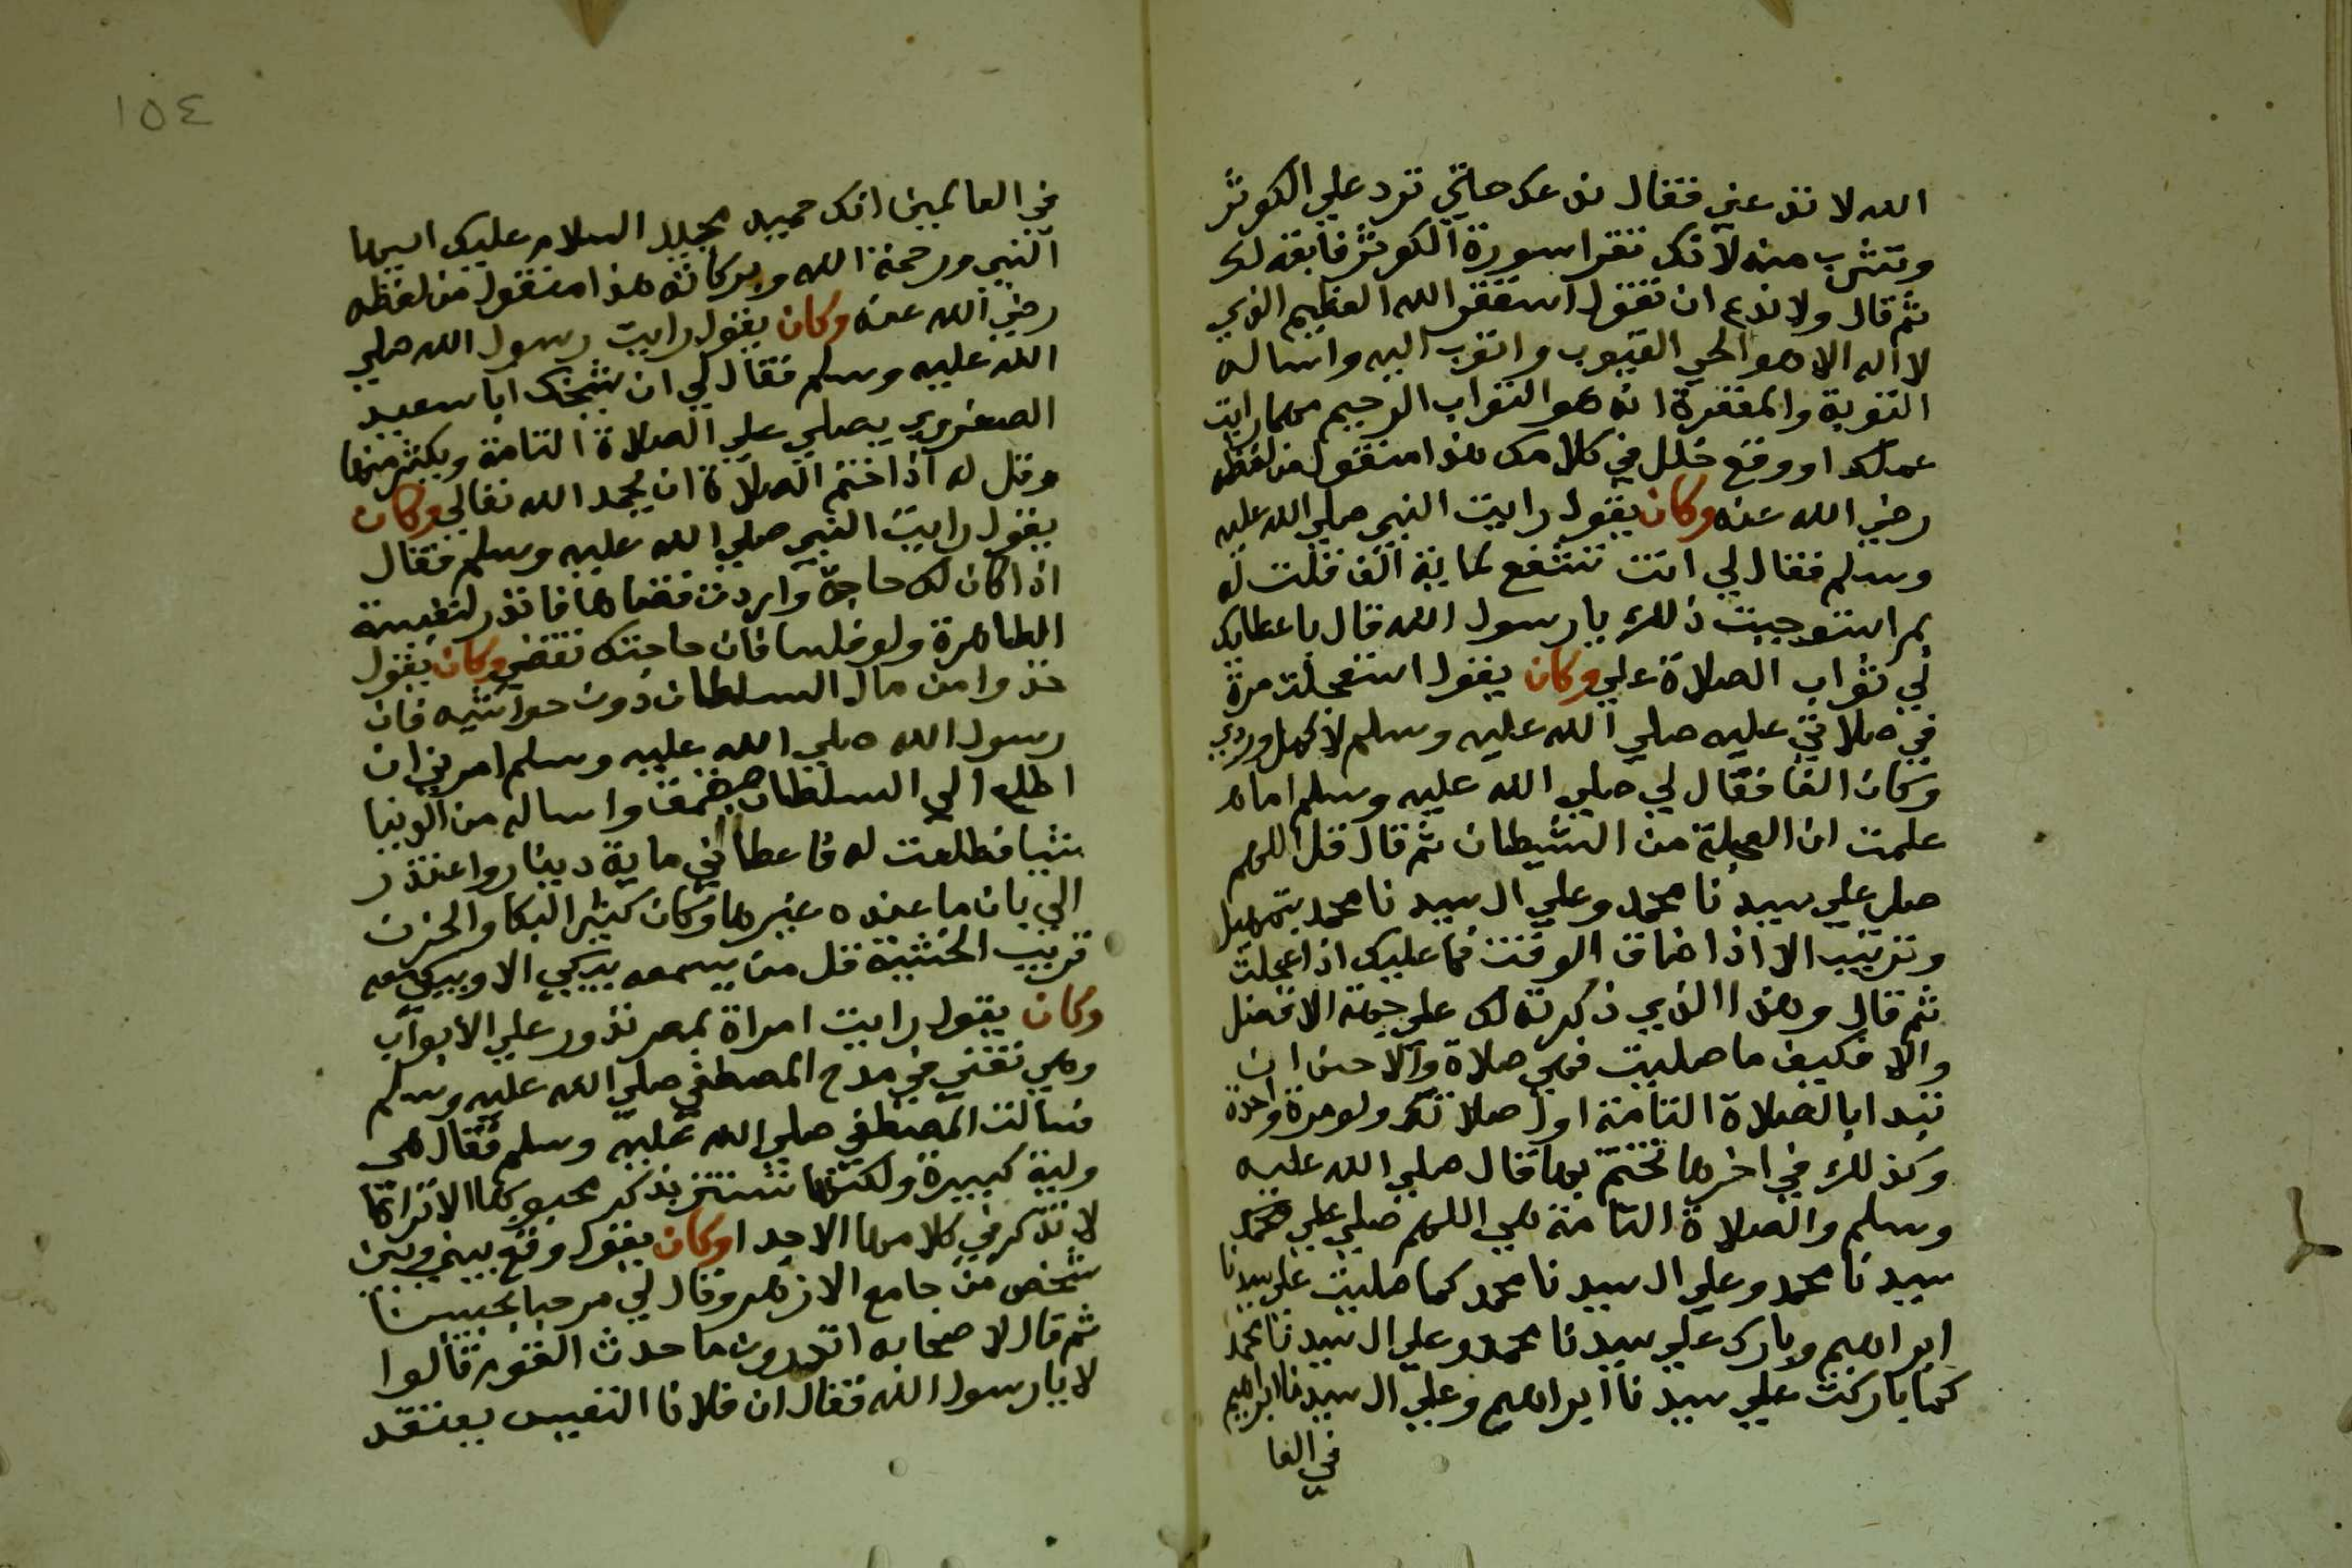 الله لا تدعني فقال ندعك حاتي ترد علي الكوثر
وتشرب منه لانك تقرا سورة الكوثر فابقه لك
ثم قال ولا تدع ان تقول استغفر الله العظيم الذي
لا اله الا هو الحي القيوب واتوب اليه واساله
التوبة والمغفرة انه هو التواب الرحيم مهما رايت
عملك او وقع خلل في كلامك هذا منقول من لفظه
رضي الله عنه وكان يقول رايت النبي صلي الله عليه
وسلم فقال لي انت تشفع لماية الف قلت له
بم استوجبت ذلك يا رسول الله قال باعطايك
لي ثواب الصلاة علي وكان يقول استعجلت مرة
في صلاتي عليه صلي الله عليه وسلم لاكمل وردي
وكان الفا فقال لي صلي الله عليه وسلم اما
علمت ان العجلة من الشيطان ثم قال قل اللهم
صلي علي سيدنا محمد وعلي ال سيدنا محمد بتمهيل
وترتيب الا اذا ضاق الوقت فما عليك اذا عجلت
ثم قال وهذا الذي ذكرته لك علي جهة الافضل
والا فكيف ما صليت فهي صلاة والاحسن ان
تبدا بالصلاة التامة اول صلاتك ولو مرة واحدة
وكذلك في اخرها تختم بها قال صلي الله عليه
وسلم والصلاة التامة هي اللهم صلي علي
سيدنا محمد وعلي ال سيدنا محمد كما صليت علي سيدنا
ابراهيم وبارك علي سيدنا محمد وعلي ال سيدنا محمد
كما باركت علي سيدنا ابراهيم وعلي ال سيدنا ابراهيم
في العا
١٥٤
في العالمين انك حميد مجيد السلام عليك ايها
النبي ورحمة الله وبركاته هذا منقول من لفظه
رضي الله عنه وكان يقول رايت رسول الله صلي
الله عليه وسلم فقال لي ان شيخك ابا سعيد
الصفروي يصلي علي الصلاة التامة ويكثر منها
وقل له اذا ختم الصلاة ان يحمد الله تعالي وكان
يقول رايت النبي صلي الله عليه وسلم فقال
اذا كان لك حاجة واردت قضاها فانذر لنفيسة
الطاهرة ولو فلسا فان حاجتك تقضي وكان يقول
خذوا من مال السلطان دون حواشيه فان
رسول الله صلي الله عليه وسلم امرني ان
اطلع الي السلطان جقمق واساله من الدنيا
شيا فطلعت له فاعطاني ماية دينار واعتذر
الي بان ما عنده غيرها وكان كثير البكا والحزن
قريب الخشية قل من يسمعه يبكي الا ويبكي معه
وكان يقول رايت امراة بمصر تدور علي الابواب
وهي تغني في مدح المصطفي صلي الله عليه وسلم
فسالت المصطفي صلي الله عليه وسلم فقال هي
ولية كبيرة ولكنها تستتر بذكر محبوبها الا تراها
لا تذكر في كلامها الا جدا وكان يقول وقع بيني وبين
شخص من جامع الازهر وقال لي مرحبا بحبيبنا
ثم قال لاصحابه اتدرون ما حدث قالوا
لا يا رسول الله فقال ان فلانا التعيس يعتقد